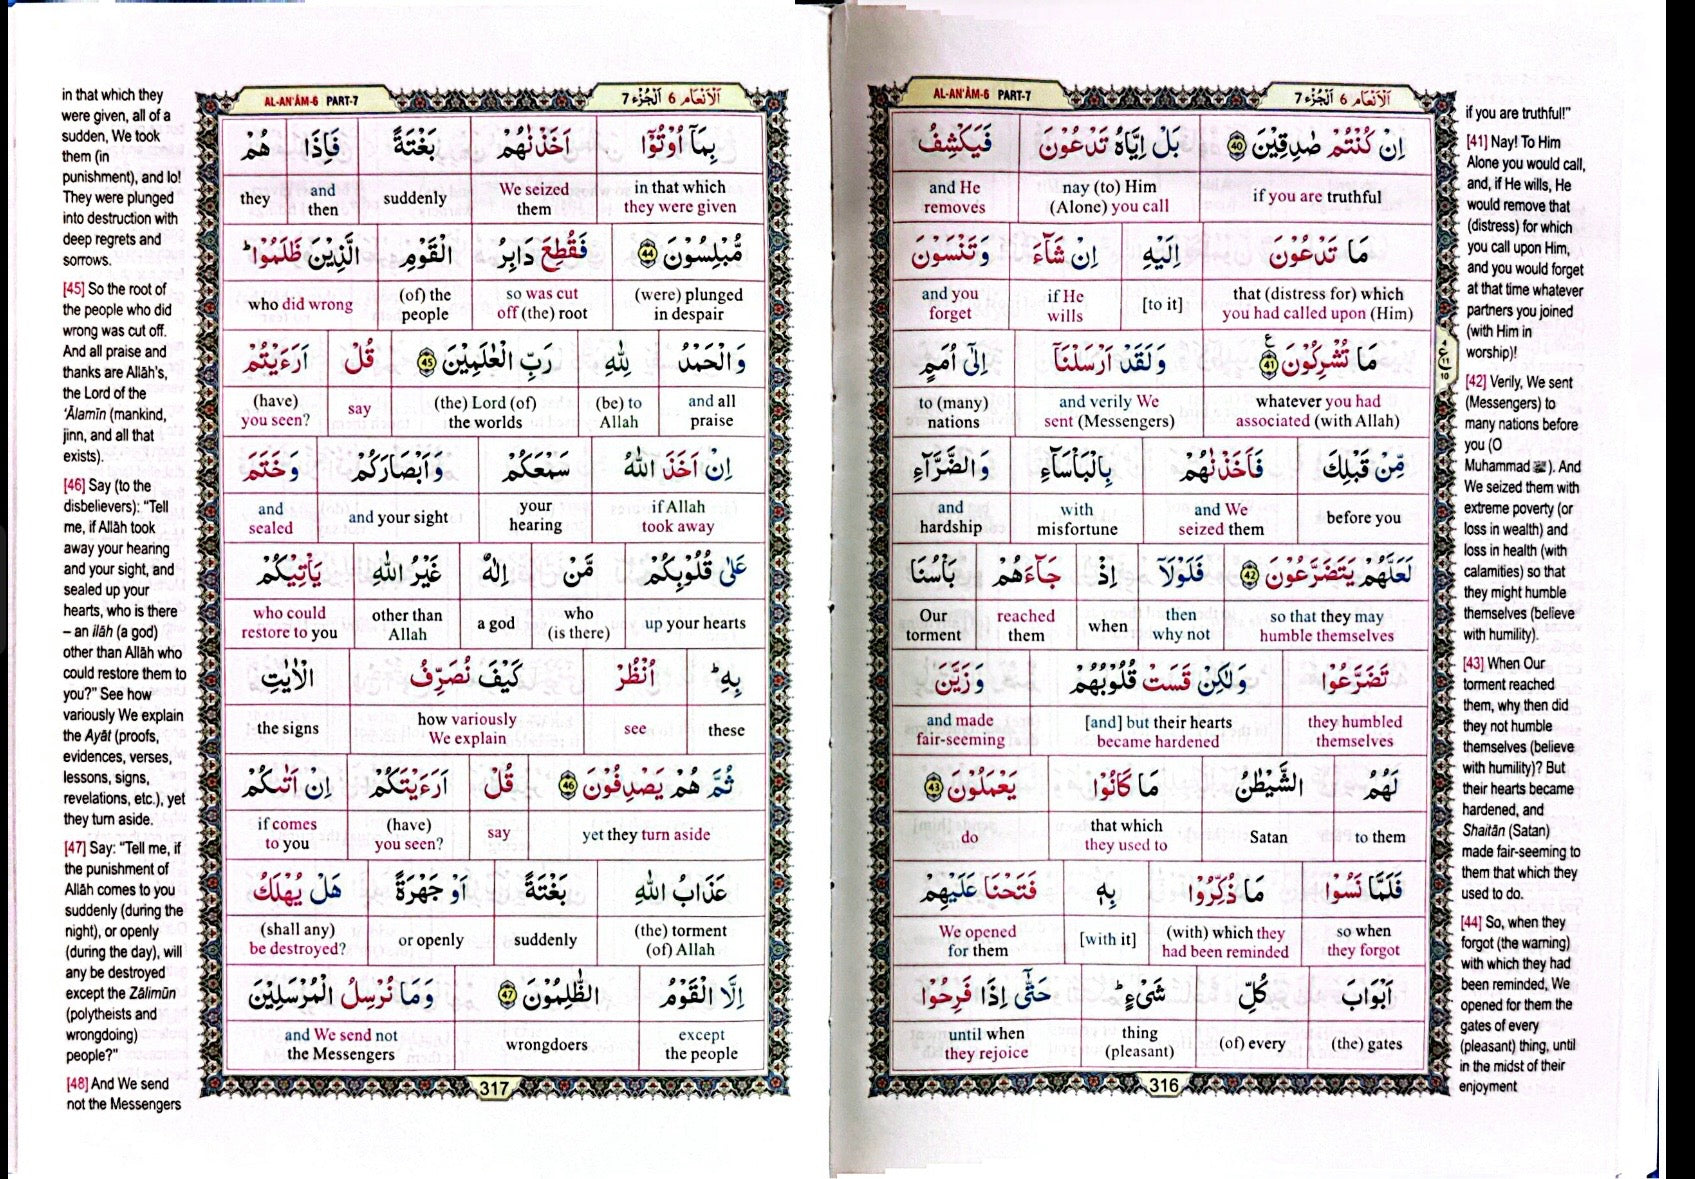 AL-AN'ÂM-6 PART-7
اَلْاَنْعَام 6 اَلْجُزْء 7
اِنْ كُنْتُمْ صٰدِقِيْنَ ﴿40﴾ بَلْ اِيَّاهُ تَدْعُوْنَ فَيَكْشِفُ
if you are truthful
nay (to) Him (Alone) you call
and He removes
مَا تَدْعُوْنَ اِلَيْهِ اِنْ شَآءَ وَتَنْسَوْنَ
that (distress for) which you had called upon (Him)
[to it]
if He wills
and you forget
مَا تُشْرِكُوْنَ ﴿41﴾ وَلَقَدْ اَرْسَلْنَآ اِلٰٓى اُمَمٍ
whatever you had associated (with Allah)
and verily We sent (Messengers)
to (many) nations
مِّنْ قَبْلِكَ فَاَخَذْنٰهُمْ بِالْبَاْسَآءِ وَالضَّرَّآءِ
before you
and We seized them
with misfortune
and hardship
لَعَلَّهُمْ يَتَضَرَّعُوْنَ ﴿42﴾ فَلَوْلَآ اِذْ جَآءَهُمْ بَاْسُنَا
so that they may humble themselves
then why not
when
reached them
Our torment
تَضَرَّعُوْا وَلٰكِنْ قَسَتْ قُلُوْبُهُمْ وَزَيَّنَ
they humbled themselves
[and] but their hearts became hardened
and made fair-seeming
لَهُمُ الشَّيْطٰنُ مَا كَانُوْا يَعْمَلُوْنَ ﴿43﴾
to them
Satan
that which they used to
do
فَلَمَّا نَسُوْا مَا ذُكِّرُوْا بِهٖ فَتَحْنَا عَلَيْهِمْ
so when they forgot
(with) which they had been reminded
[with it]
We opened for them
اَبْوَابَ كُلِّ شَىْءٍ ۭ حَتّٰٓى اِذَا فَرِحُوْا
(the) gates
(of) every
thing (pleasant)
until when they rejoice
316
if you are truthful!"
[41] Nay! To Him
Alone you would call,
and, if He wills, He
would remove that
(distress) for which
you call upon Him,
and you would forget
at that time whatever
partners you joined
(with Him in
worship)!
[42] Verily, We sent
(Messengers) to
many nations before
you (O
Muhammad ﷺ). And
We seized them with
extreme poverty (or
loss in wealth) and
loss in health (with
calamities) so that
they might humble
themselves (believe
with humility).
[43] When Our
torment reached
them, why then did
they not humble
themselves (believe
with humility)? But
their hearts became
hardened, and
Shaitân (Satan)
made fair-seeming to
them that which they
used to do.
[44] So, when they
forgot (the warning)
with which they had
been reminded, We
opened for them the
gates of every
(pleasant) thing, until
in the midst of their
enjoyment
AL-AN'ÂM-6 PART-7
اَلْاَنْعَام 6 اَلْجُزْء 7
بِمَآ اُوْتُوْٓا اَخَذْنٰهُمْ بَغْتَةً فَاِذَا هُمْ
in that which they were given
We seized them
suddenly
and then
they
مُّبْلِسُوْنَ ﴿44﴾ فَقُطِعَ دَابِرُ الْقَوْمِ الَّذِيْنَ ظَلَمُوْا ۭ
(were) plunged in despair
so was cut off (the) root
(of) the people
who did wrong
وَالْحَمْدُ لِلّٰهِ رَبِّ الْعٰلَمِيْنَ ﴿45﴾ قُلْ اَرَءَيْتُمْ
and all praise
(be) to Allah
(the) Lord (of) the worlds
say
(have) you seen?
اِنْ اَخَذَ اللّٰهُ سَمْعَكُمْ وَاَبْصَارَكُمْ وَخَتَمَ
if Allah took away
your hearing
and your sight
and sealed
عَلٰى قُلُوْبِكُمْ مَّنْ اِلٰهٌ غَيْرُ اللّٰهِ يَاْتِيْكُمْ
up your hearts
who (is there)
a god
other than Allah
who could restore to you
بِهٖ ۭ اُنْظُرْ كَيْفَ نُصَرِّفُ الْاٰيٰتِ
these
see
how variously We explain
the signs
ثُمَّ هُمْ يَصْدِفُوْنَ ﴿46﴾ قُلْ اَرَءَيْتَكُمْ اِنْ اَتٰىكُمْ
yet they turn aside
say
(have) you seen?
if comes to you
عَذَابُ اللّٰهِ بَغْتَةً اَوْ جَهْرَةً هَلْ يُهْلَكُ
(the) torment (of) Allah
suddenly
or openly
(shall any) be destroyed?
اِلَّا الْقَوْمُ الظّٰلِمُوْنَ ﴿47﴾ وَمَا نُرْسِلُ الْمُرْسَلِيْنَ
except the people
wrongdoers
and We send not the Messengers
317
in that which they
were given, all of a
sudden, We took
them (in
punishment), and lo!
They were plunged
into destruction with
deep regrets and
sorrows.
[45] So the root of
the people who did
wrong was cut off.
And all praise and
thanks are Allâh's,
the Lord of the
'Âlamîn (mankind,
jinn, and all that
exists).
[46] Say (to the
disbelievers): "Tell
me, if Allâh took
away your hearing
and your sight, and
sealed up your
hearts, who is there
– an ilâh (a god)
other than Allâh who
could restore them to
you?" See how
variously We explain
the Ayât (proofs,
evidences, verses,
lessons, signs,
revelations, etc.), yet
they turn aside.
[47] Say: "Tell me, if
the punishment of
Allâh comes to you
suddenly (during the
night), or openly
(during the day), will
any be destroyed
except the Zâlimûn
(polytheists and
wrongdoing)
people?"
[48] And We send
not the Messengers